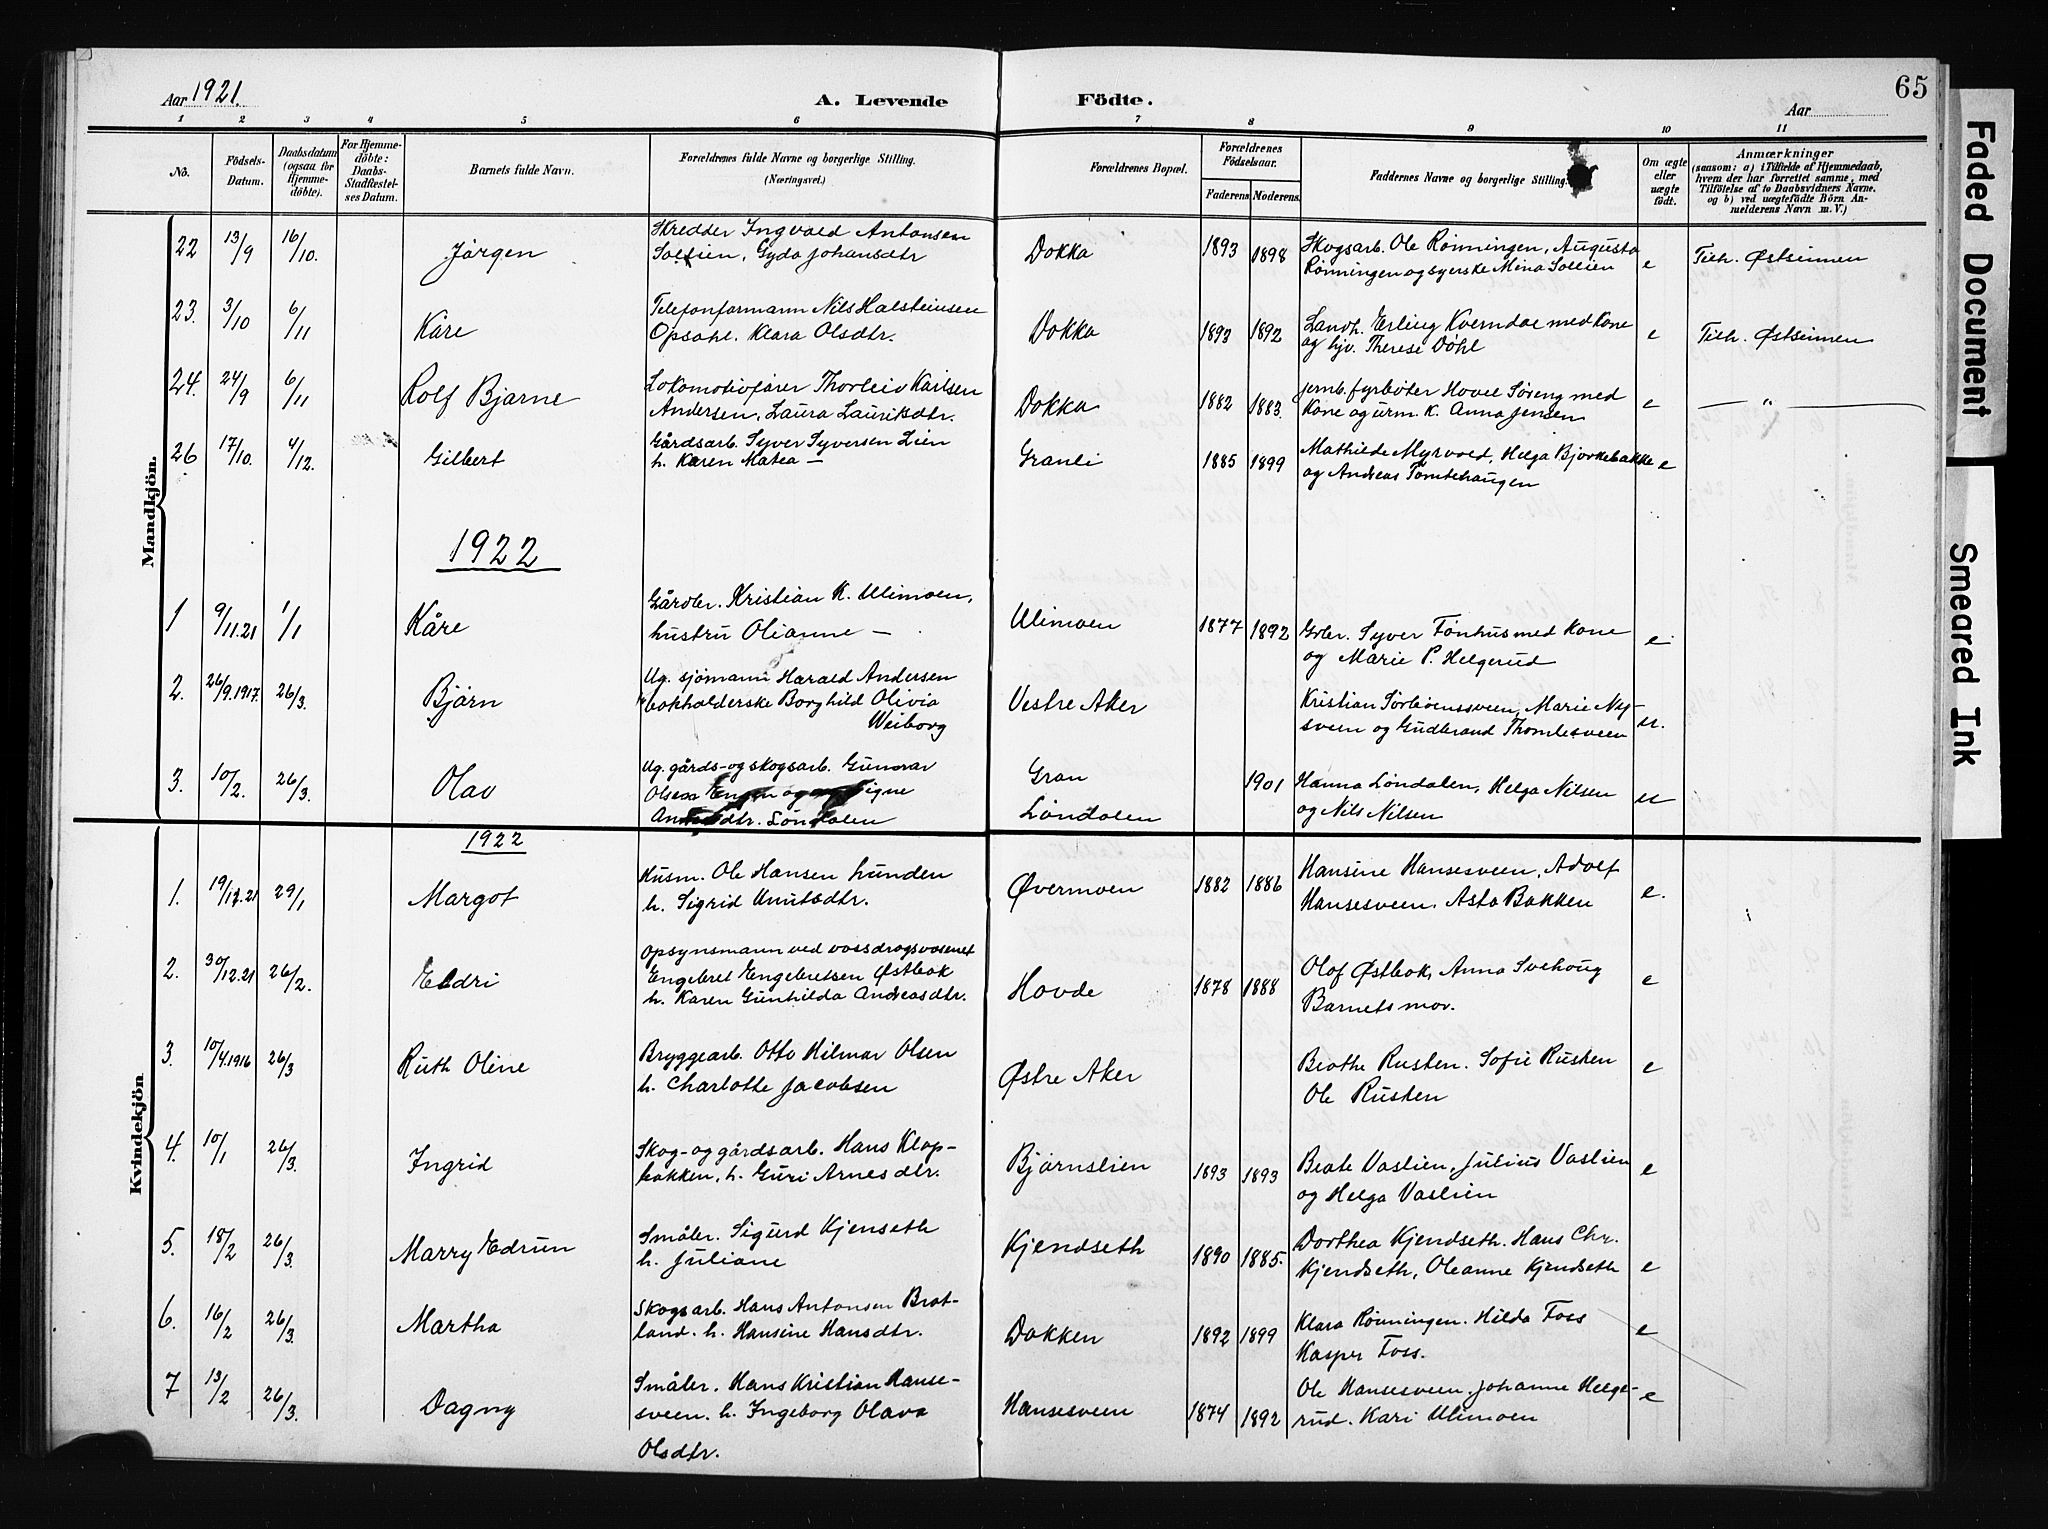 65
Aar 1921.
A. Levende Födte.
Aar
1 2 3 4 5 6 7 8 9 10 11
No.
Födsels-Datum.
Daabsdatum (ogsaa for Hjemmedöbte).
For Hjemmedöbte: Daabs-Stadfæstelses Datum.
Barnets fulde Navn.
Forældrenes fulde Navne og borgerlige Stilling.
(Næringsvei.)
Forældrenes Bopæl.
Forældrenes Födselsaar.
Faderens. Moderens.
Faddernes Navne og borgerlige Stilling.
Om ægte eller uægte födt.
Anmærkninger
(saasom: a) i Tilfælde af Hjemmedaab,
hvem der har forrettet samme, med
Tilföielse af to Daabsvidners Navne.
og b) ved uægtefödte Börn An-
melderens Navn m. V.)
Mandkjön.
22 13/9 16/10. Jörgen
Skredder Ingvald Antonsen
Sollien, Gyda Johansdtr
Dokka 1893 1898
Skogsarb. Ole Rønningen, Augusta
Rønningen og syerske Mina Sollien
e Tilh. Østsinnen
23. 3/10 6/11 Kåre
Telefonformann Nils Halsteinsen
Opsahl. Klara Olsdtr.
Dokka 1893 1892
Landh. Erling Kverndal med Kone
og hjv. Therese Döhl
e Tilh. Østsinnen
24. 24/9 6/11 Rolf Bjarne
Lokomotivfører Thorleiv Karlsen
Andersen, Laura Lauritsdtr.
Dokka 1882 1883.
jernb. fyrbøter Hovel Søreng med
Kone og urm. K. Anna Jensen
e — " —
26 17/10. 4/12. Gilbert
Gårdsarb. Syver Syversen Lien
h. Karen Matea —
Granli 1885 1899
Mathilde Myrvold, Helga Bjørkebakke
og Andreas Tomtehaugen
e
1922
1 9/11.21 1/1 Kåre
Gårdbr. Kristian K. Ulimoen,
hustru Olianne —
Ulimoen 1877 1892
Grbr. Syver Tønhus med Kone
og Marie P. Helgerud
e
2. 26/9.1917. 26/3. Björn
Ug. sjömann Harald Andersen
" bokholderske Borghild Olivia
Weiborg
Vestre Aker
Kristian Sørbøenssveen, Marie Ny-
sveen og Gudbrand Thomlesveen
u.
3. 10/2. 26/3. Olav
Ug. gårds- og skogsarb. Gunnar
Olsen Engen og Signe
dtr. Løndalen
Gran
Løndalen
1901
Hanna Løndalen, Helga Nilsen
og Nils Nilsen
u
Kvindekjön
1922
1. 19/12.21 29/1 Margot
Husm. Ole Hansen Lunden
h. Sigrid Knutsdtr.
Øvermoen 1882 1886
Hansine Hansesveen, Adolf
Hansesveen. Asta Bakken
e.
2. 30/12.21 26/2. Eldri
Opsynsmann ved vassdragsvesenet
Engebret Engebretsen Østbak
h. Karen Gunhilda Andreasdtr.
Hovde 1878 1888
Olaf Østbak, Anna Svehaug
Barnets mor.
e
3. 10/4.1916 26/3 Ruth Oline
Bryggearb. Otto Hilmar Olsen
h. Charlotte Jacobsen
Østre Aker
Beathe Rusten. Sofie Rusten
Ole Rusten
e
4. 10/1 26/3. Ingrid
Skog- og gårdsarb. Hans Klop-
bakken, h. Guri Arnesdtr.
Bjørnslien 1893 1893
Beate Vaslien, Julius Vaslien
og Helga Vaslien
e
5. 18/2 26/3. Marry Edrun
Småbr. Sigurd Kjenseth
h. Juliane
Kjendseth 1890 1885.
Dorthea Kjendseth. Hans Chr.
Kjendseth, Oleanne Kjendseth
e
6. 16/2 26/3. Martha
Skogsarb. Hans Antonsen Brat-
land. h. Hansine Hansdtr.
Dokken 1892 1899
Klara Rønningen. Hilda Foss
Kasper Foss.
e
7 13/2 26/3. Dagny
Småbr. Hans Kristian Hanse-
sveen. h. Ingeborg Olava
Olsdtr.
Hansesveen 1874 1892
Ole Hansesveen. Johanne Helge-
rud. Kari Ulimoen
e
Faded Document
Smeared Ink